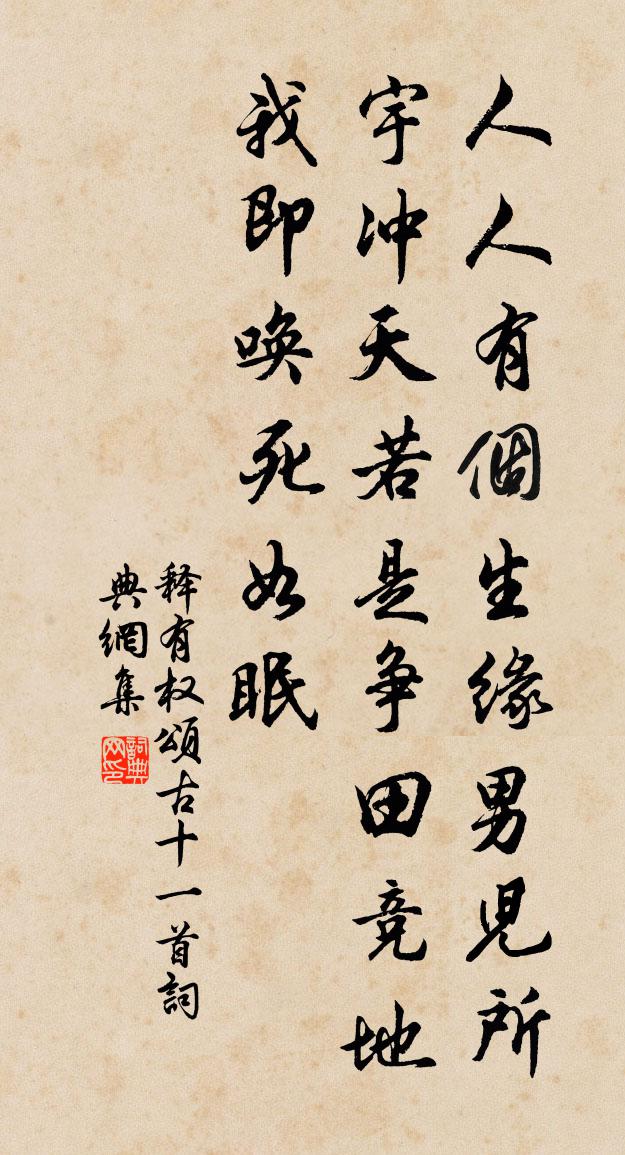 人人有個生緣男児所
宇冲天若是争田竞地
我即唤死如眠
释有权頌古十一首詞
典網集
詞典网印